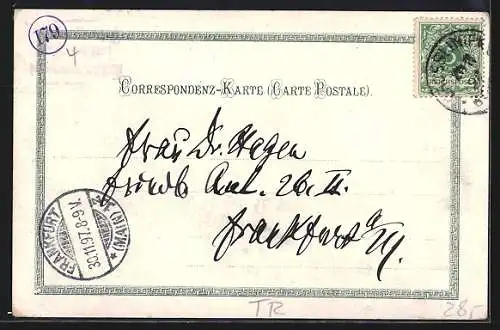 179
4
5
CORRESPONDENZ-KARTE (CARTE POSTALE).
Frau Dr. Hagen
26. II
Frankfurt a/M.
FRANKFURT (MAIN)
30.11.97.8-9 V.
TR
28,-